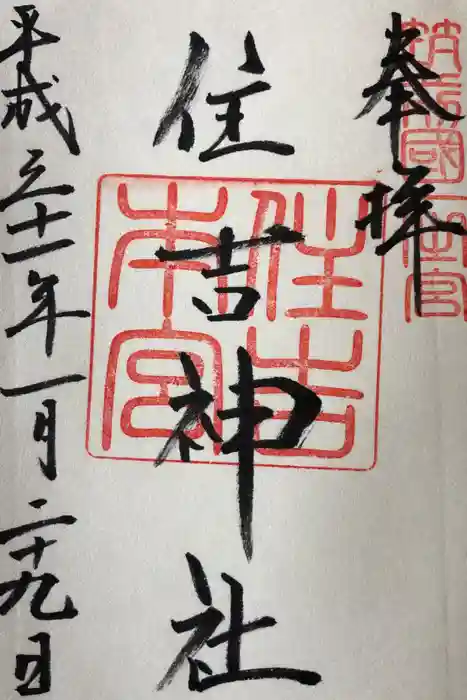 奉拝
筑前國一之宮
住吉神社
住吉本宮
平成三十一年一月二十九日